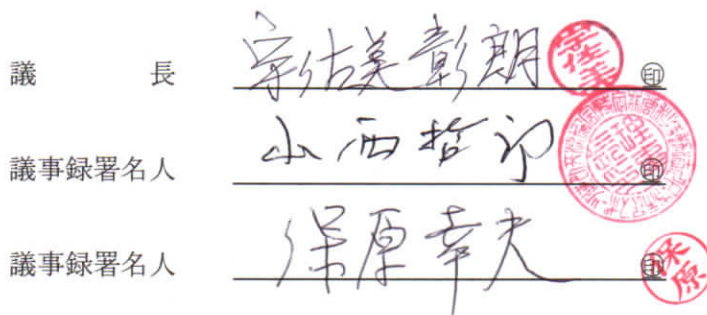 議長 宇佐美彰朗 ㊞ 宇佐美
議事録署名人 山西哲郎 ㊞
議事録署名人 保原幸夫 ㊞ 保原